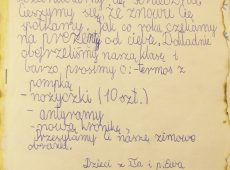 cieszymy się, że znowu Cię
spotkamy. Jak co roku czekamy
na prezenty od ciebie. Dokładnie
obejrzeliśmy naszą klasę i
bardzo prosimy o: -termos z
pompką
- nożyczki (10 szt.)
- antyramy
- nową kronikę,
Przesyłamy Ci nasze zimowe
obrazki.
Dzieci z IIa i p. Ewa